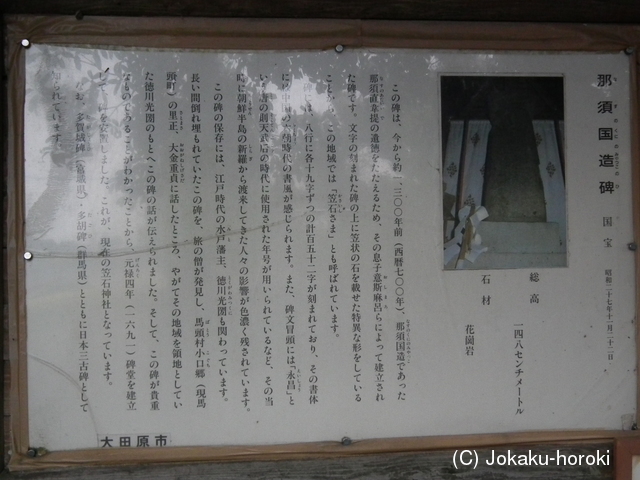 那須国造碑
なすのくにのみやつこのひ
国宝
昭和二十七年十一月二十二日
総高 一四八センチメートル
石材 花崗岩
この碑は、今から約一、三〇〇年前（西暦七〇〇年）、那須国造であった
那須直韋提の遺徳をたたえるため、その息子意斯麻呂らによって建立され
た碑です。文字の刻まれた碑の上に笠状の石を載せた特異な形をしている
ことから、この地域では「笠石さま」とも呼ばれています。
は、八行に各十九字ずつの計百五十二字が刻まれており、その書体
に 時代の書風が感じられます。また、碑文冒頭には「永昌」と
い 唐の則天武后の時代に使用された年号が用いられているなど、その当
時に朝鮮半島の新羅から渡来してきた人々の影響が色濃く残されています。
この碑の保存には、江戸時代の水戸藩主、徳川光圀も関わっています。
長い間倒れ埋もれていたこの碑を、旅の僧が発見し、馬頭村小口郷（現馬
頭町）の里正、大金重貞に話したところ、やがてその地域を領地としてい
た徳川光圀のもとへこの碑の話が伝えられました。そして、この碑が貴重
なものであることがわかったことから、元禄四年（一六九一）碑堂を建立
して、碑を安置しました。これが、現在の笠石神社となっています。
なお、多賀城碑（宮城県）・多胡碑（群馬県）とともに日本三古碑として
知られています。
大田原市
(C) Jokaku-horoki